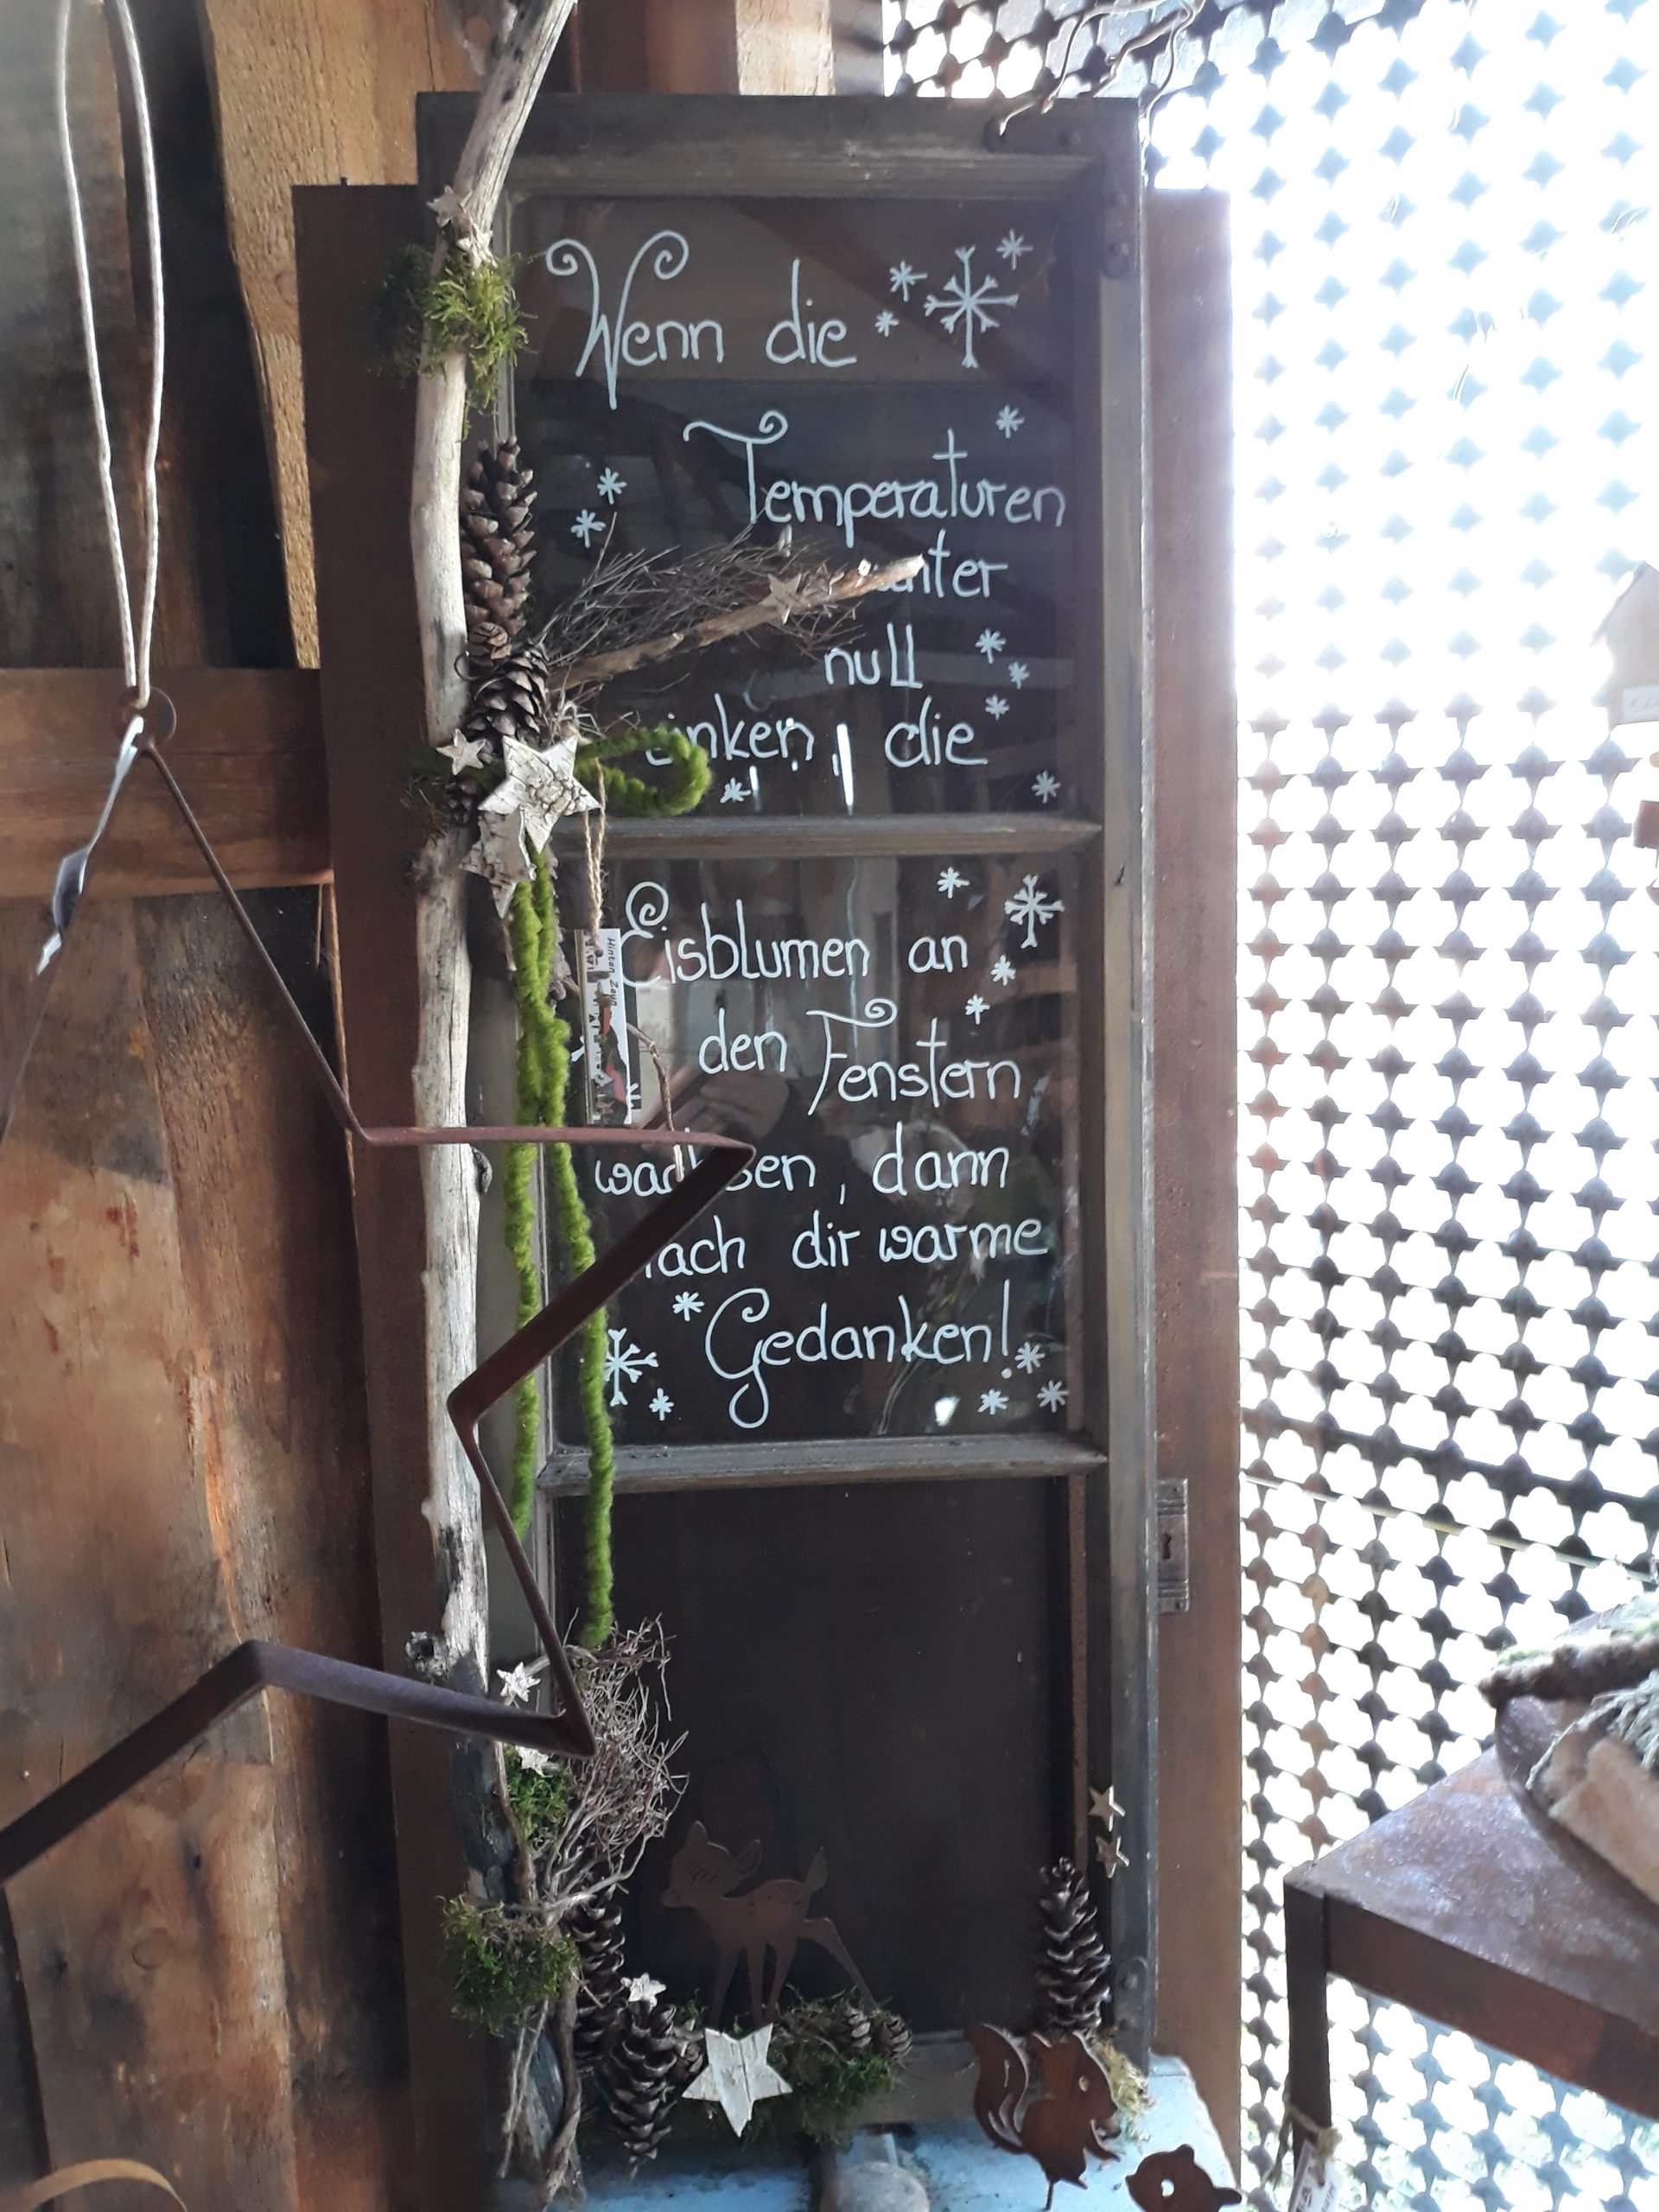 Wenn die
Temperaturen
unter
null
sinken, die
Eisblumen an
den Fenstern
wachsen, dann
mach dir warme
Gedanken!
Hinten Zaun